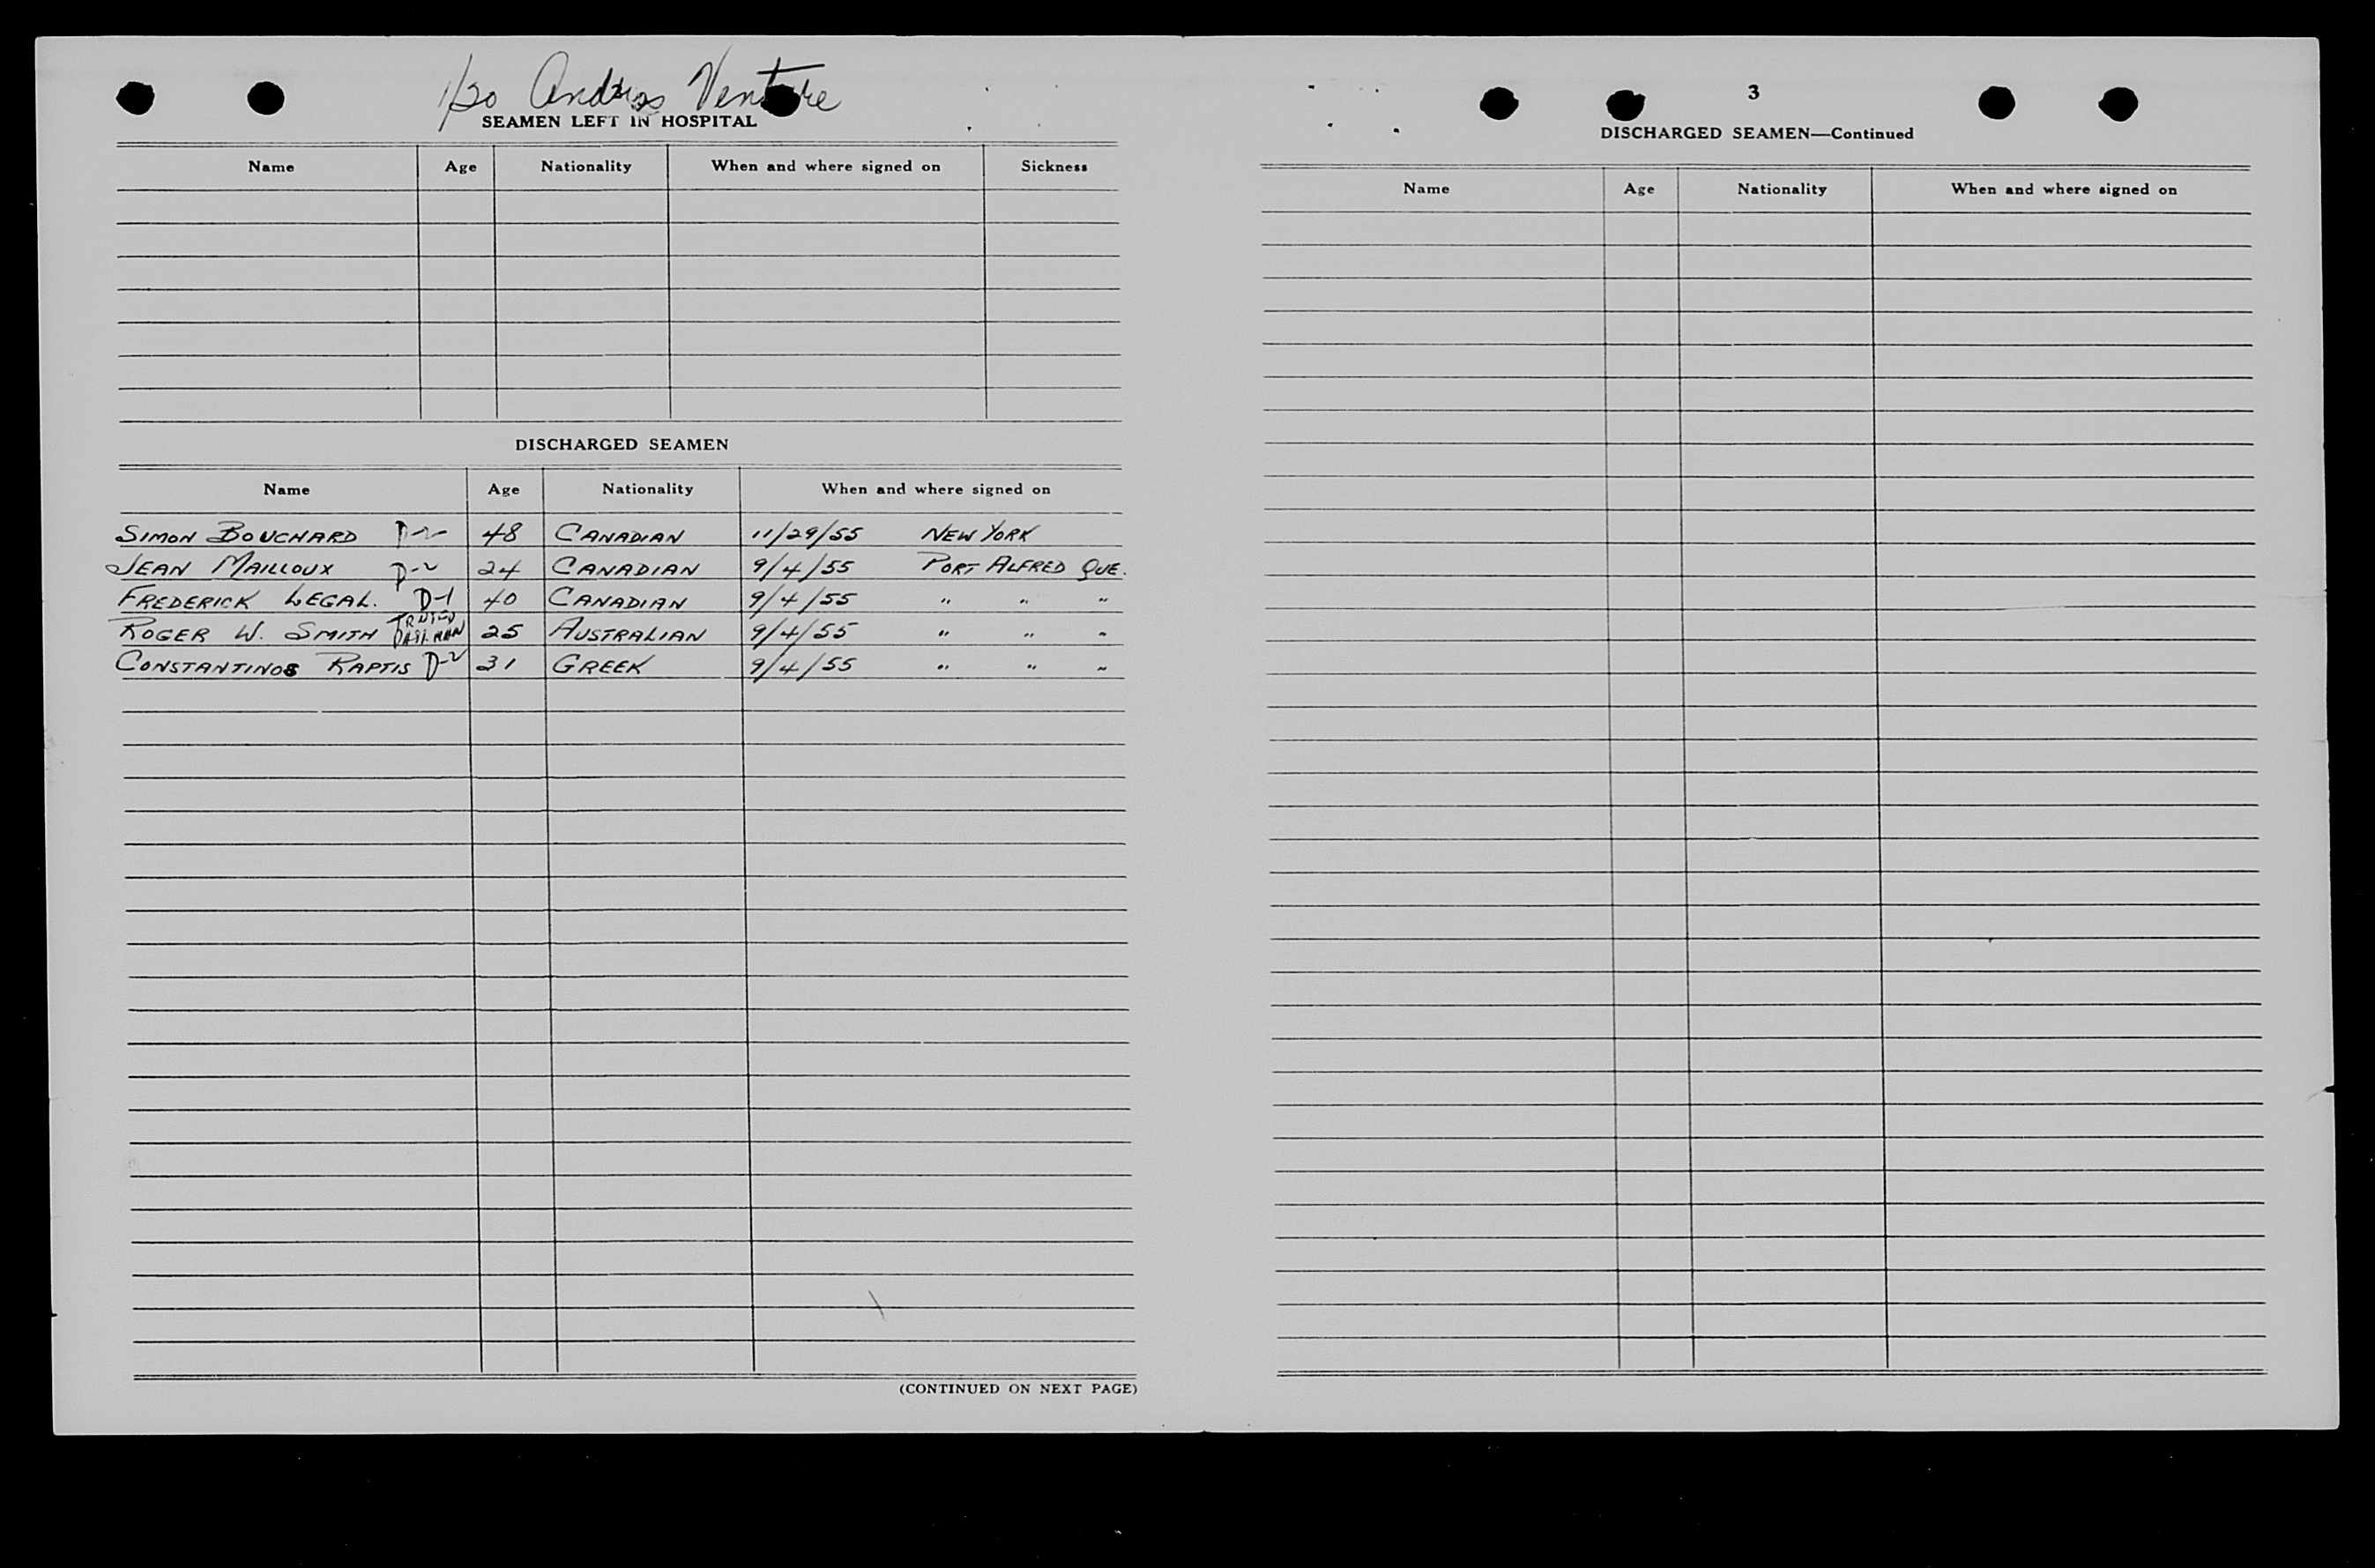 1/20 Andros Venture
SEAMEN LEFT IN HOSPITAL
Name Age Nationality When and where signed on Sickness
DISCHARGED SEAMEN
Name Age Nationality When and where signed on
SIMON BOUCHARD D-2 48 CANADIAN 11/29/55 NEW YORK
JEAN MAILLOUX D-2 24 CANADIAN 9/4/55 PORT ALFRED QUE.
FREDERICK LEGAL. D-1 40 CANADIAN 9/4/55 " " "
ROGER W. SMITH 25 AUSTRALIAN 9/4/55 " " "
CONSTANTINOS RAPTIS D-2 31 GREEK 9/4/55 " " "
(CONTINUED ON NEXT PAGE)
3
DISCHARGED SEAMEN—Continued
Name Age Nationality When and where signed on